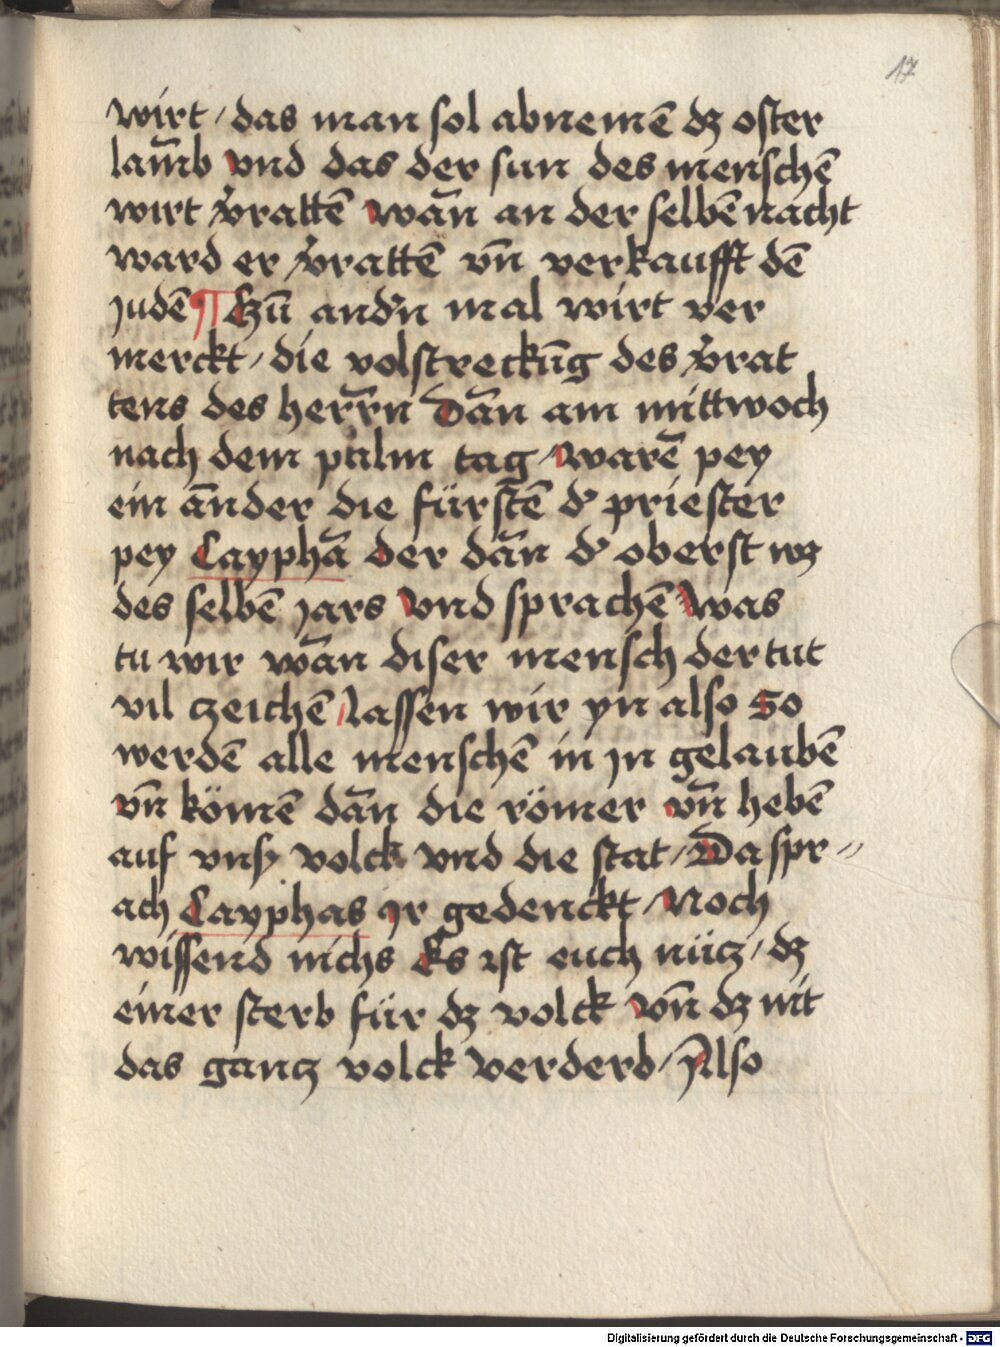 17
wirt / das man sol abnemē dz oster
lam̄b vnd das der sun des menschē
wirt v̾rattē wan̄ an der selbē nacht
ward er v̾rattē vn̄ verkaufft dē
judē ¶ Zū and̾n mal wirt ver
merckt / die volstreckūg des v̾rat
tens des herr̄n Dan̄ am mittwoch
nach dem palm tag / warē pey
ein an̄der die fürstē d̾ priester
pey Cayphā der dan̄ d̾ oberst wz
des selbē jars Vnd sprachē Was
tu wir wan̄ diser mensch der tut
vil zeichē / lassen wir yn also So
werdē alle menschē in jn gelaubē
vn̄ kömē dan̄ die römer vn̄ hebē
auf vnsz volck vnd die stat / Da spr〃
ach Cayphas Ir gedenckt / Noch
wissend nichs Es ist euch nücz / dz
einer sterb für dz volck vn̄ dz nit
das gancz volck verderb / Also
Digitalisierung gefördert durch die Deutsche Forschungsgemeinschaft - DFG